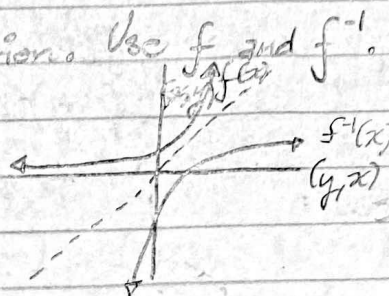 Use f and f⁻¹.
f(x)
f⁻¹(x)
(y,x)